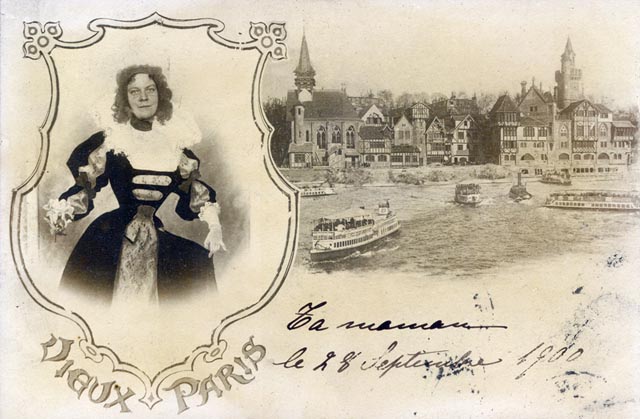 VIEUX PARIS
Ta maman
le 28 Septembre 1900